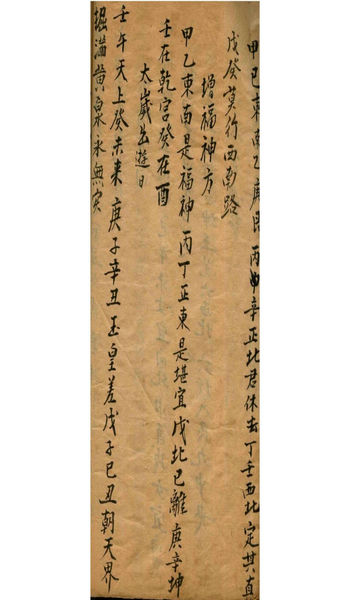 甲己東南乙庚艮丙申辛正北君休去丁壬西北定其直
戊癸莫行西南路
增福神方
甲乙東南是福神丙丁正東是堪宜戊北己離庚辛坤
壬在乾宮癸在酉
太歲出遊日
壬午天上癸未來庚子辛丑玉皇差戊子己丑朝天界
堀滿黄泉永無灾